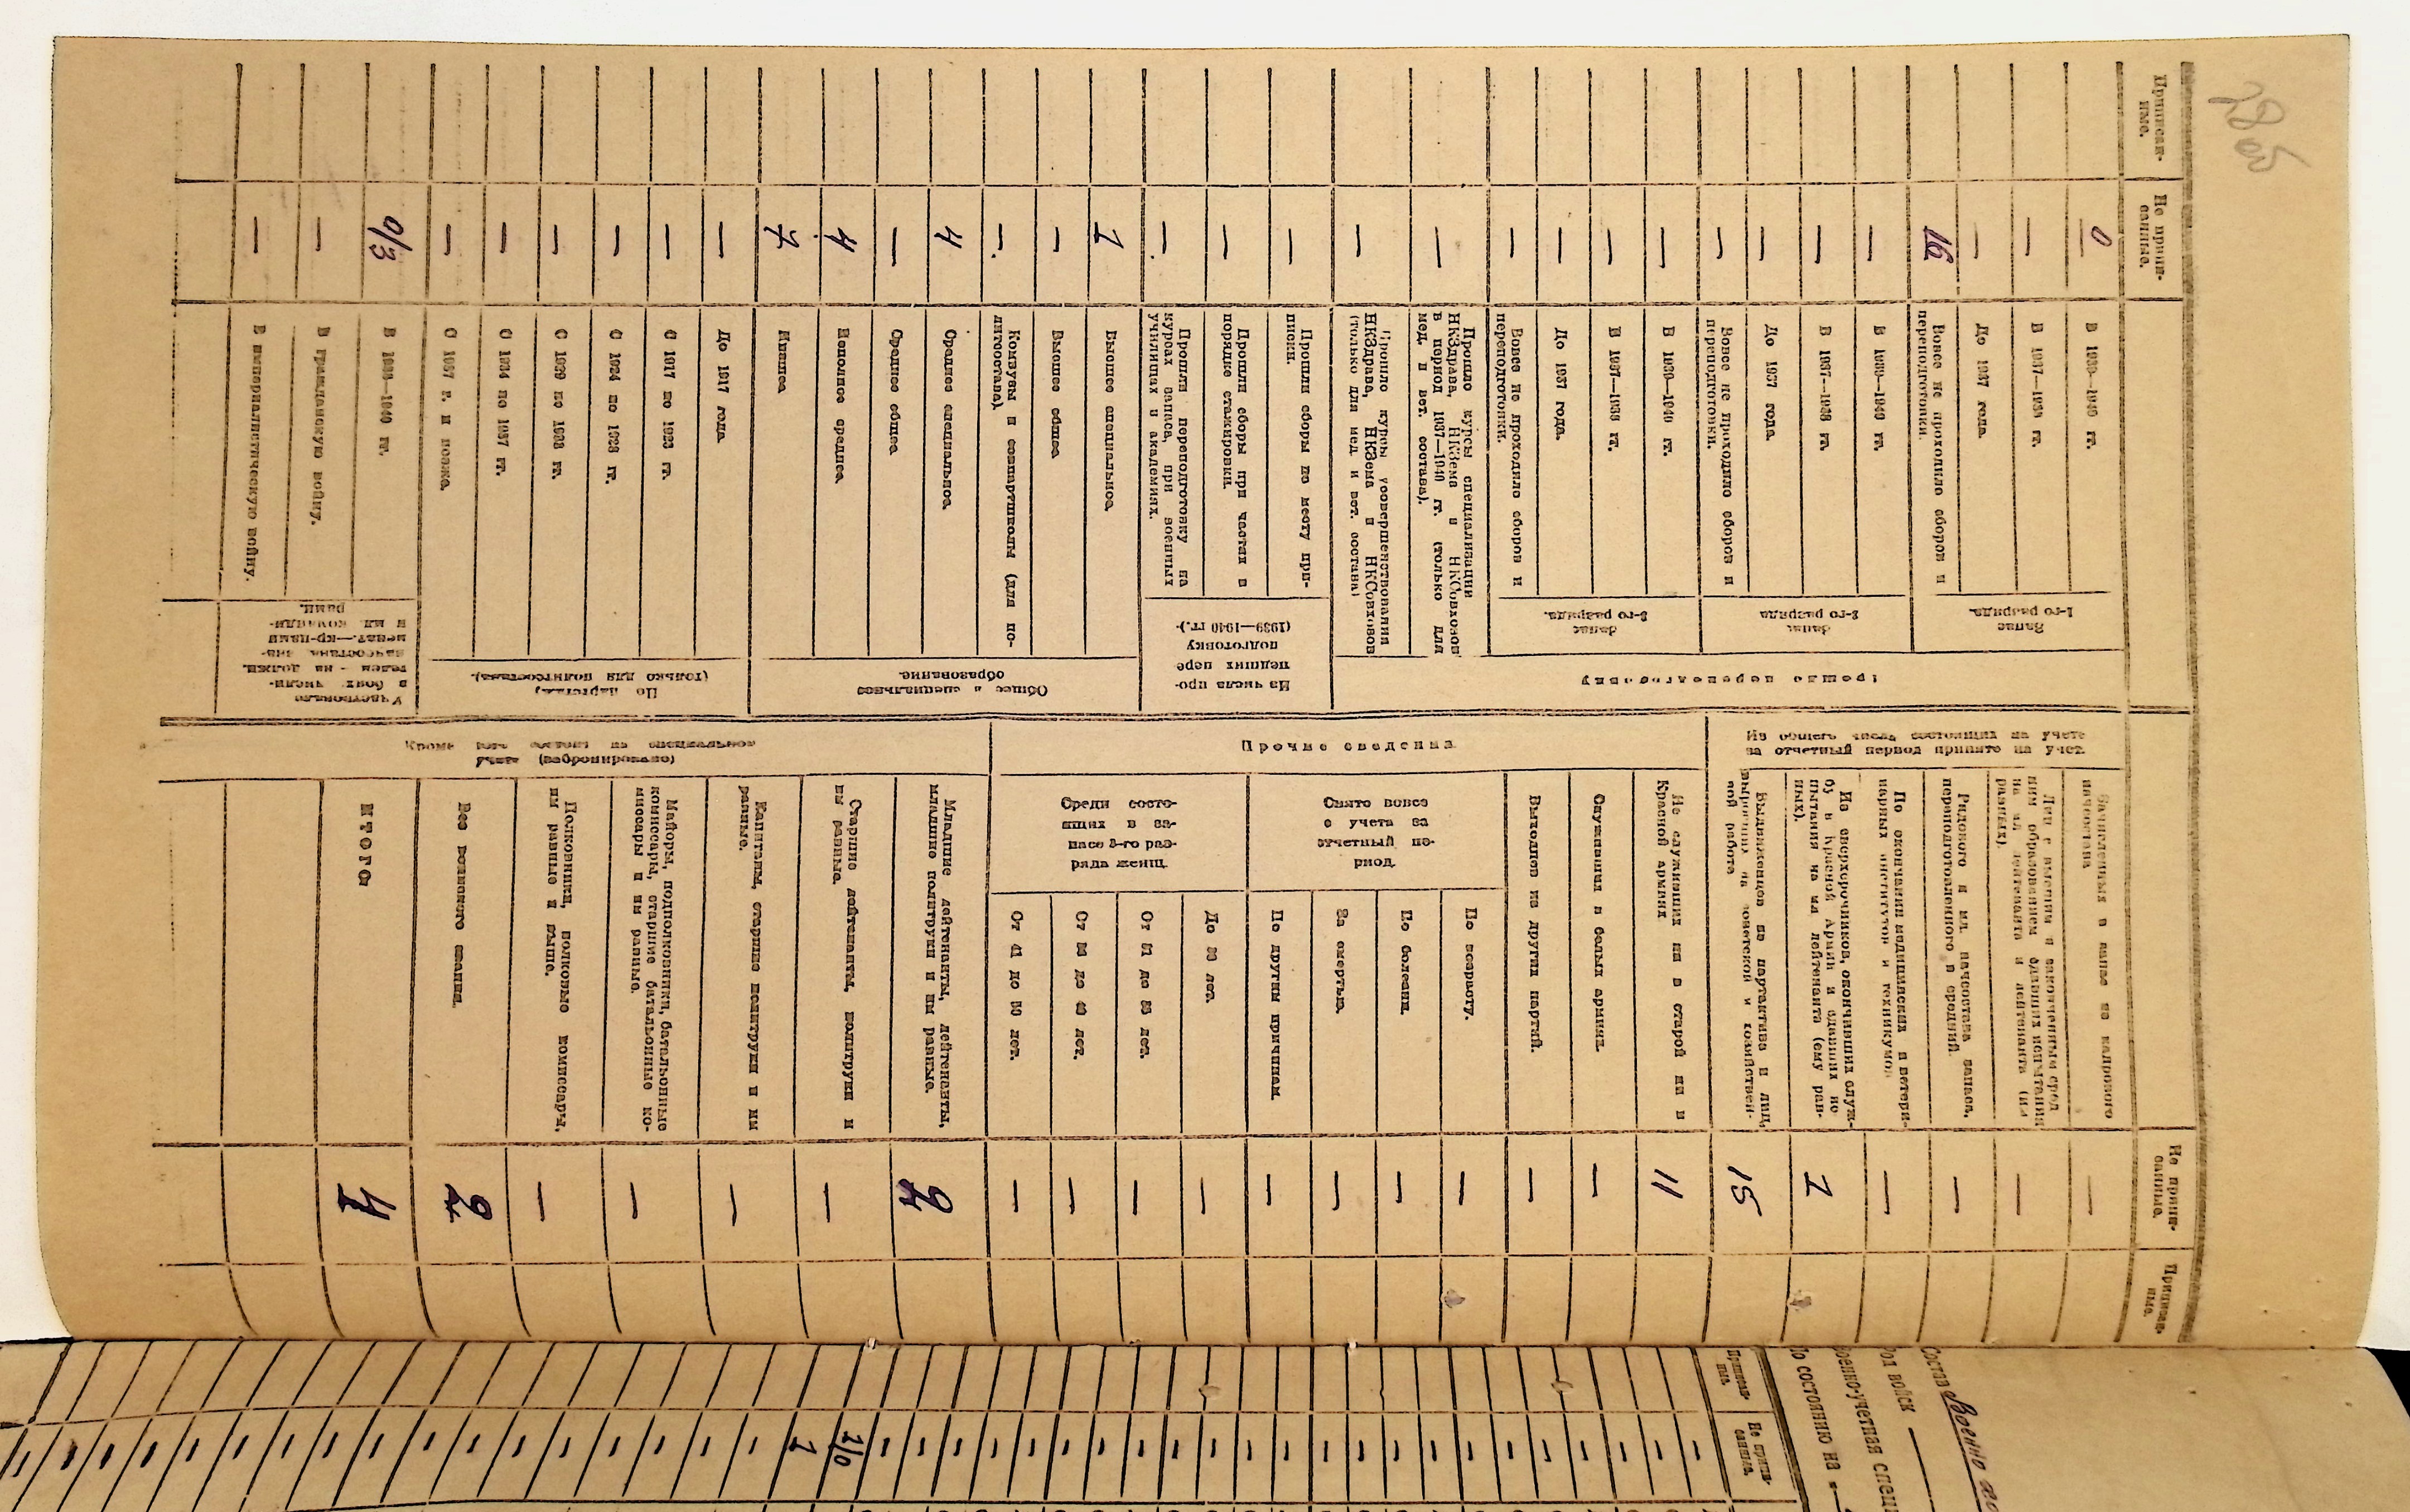 Приписан-
ные.
Не припи-
санные.
Прошло переподготовку
Запас
1-го разряда
В 1939—1940 гг.
0
В 1937—1938 гг.
—
До 1937 года.
—
Вовсе не проходило сборов и
переподготовки.
16
Запас
2-го разряда
В 1939—1940 гг.
—
В 1937—1938 гг.
—
До 1937 года.
—
Вовсе не проходило сборов и
переподготовки.
—
Запас
3-го разряда.
В 1939—1940 гг.
—
В 1937—1938 гг.
—
До 1937 года.
—
Вовсе не проходило сборов и
переподготовки.
—
Прошло курсы специализации
НКЗдрава, НКЗема и НКСовхозов
в период 1937—1940 гг. (только для
мед. и вет. состава).
—
Прошло курсы усовершенствования
НКЗдрава, НКЗема и НКСовхозов
(только для мед. и вет. состава)
—
Из числа про-
шедших пере
подготовку
(1939—1940 гг.).
Прошли сборы по месту при-
писки.
—
Прошли сборы при частях в
порядке стажировки.
—
Прошли переподготовку на
курсах запаса, при военных
училищах и академиях.
—
Общее и специальное
образование.
Высшее специальное.
1
Высшее общее
—
Комвузы и совпартшколы (для по-
литсостава).
—
Среднее специальное.
4
Среднее общее
—
Неполное среднее.
4
Низшее
7
По партстажу
(только для политсостава).
До 1917 года
—
С 1917 по 1923 гг.
—
С 1924 по 1928 гг.
—
С 1929 по 1933 гг.
—
С 1934 по 1937 гг.
—
С 1937 г. и позже.
—
Участвовало
в боях: числи-
телем - на должн.
начсостава зна-
менат.—кр-цами
и мл. команди-
рами.
В 1938—1940 гг.
0/3
В гражданскую войну.
—
В империалистическую войну.
—
Не припи-
санные.
Приписан-
ные.
Из общего числа состоящих на учете
за отчетный период принято на учет.
Зачисленных в запас из кадрового
начсостава
—
Лиц с высшим и законченным сред
ним образованием сдавших испытания
на мл. лейтенанта и лейтенанта (им
равных).
—
Рядового и мл. начсостава запаса,
переподготовленного в средний.
—
По окончании медицинских и ветери-
нарных институтов и техникумов
—
Из сверхсрочников, окончивших служ-
бу в Красной Армии и сдавших ис-
пытания на мл. лейтенанта (ему рав-
ных).
1
Выдвиженцев из партактива и лиц,
выросших на советской и хозяйствен-
ной работе
15
Прочие сведения
Не служивших ни в старой ни в
Красной армиях
11
Служивших в белых армиях.
—
Выходцев из других партий.
—
Снято вовсе
с учета за
отчетный пе-
риод.
По возрасту.
—
По болезни.
—
За смертью.
—
По другим причинам.
—
Среди состо-
ящих в за-
пасе 3-го раз-
ряда женщ.
До 30 лет.
—
От 31 до 35 лет.
—
От 36 до 40 лет.
—
От 41 до 50 лет.
—
Кроме того состоит на специальном
учете (забронировано)
Младшие лейтенанты, лейтенанты,
младшие политруки и им равные.
2
Старшие лейтенанты, политруки и
им равные.
—
Капитаны, старшие политруки и им
равные.
—
Майоры, подполковники, батальонные
комиссары, старшие батальонные ко-
миссары и им равные.
—
Полковники, полковые комиссары,
им равные и выше.
—
Без воинского звания.
2
Итого
4
Состав Военно
Род войск —
По состоянию на «—
Приписан-
ные.
Не припи-
санные.
2/0
1